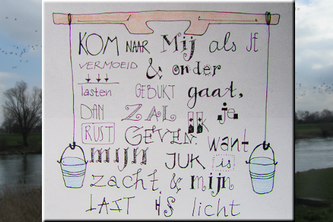 KOM NAAR Mij als JE
VERMOEID & onder
lasten GEBUKT gaat,
DAN ZAL IK je
RUST GEVEN want
mijn JUK is
zacht & mijn
LAST IS licht